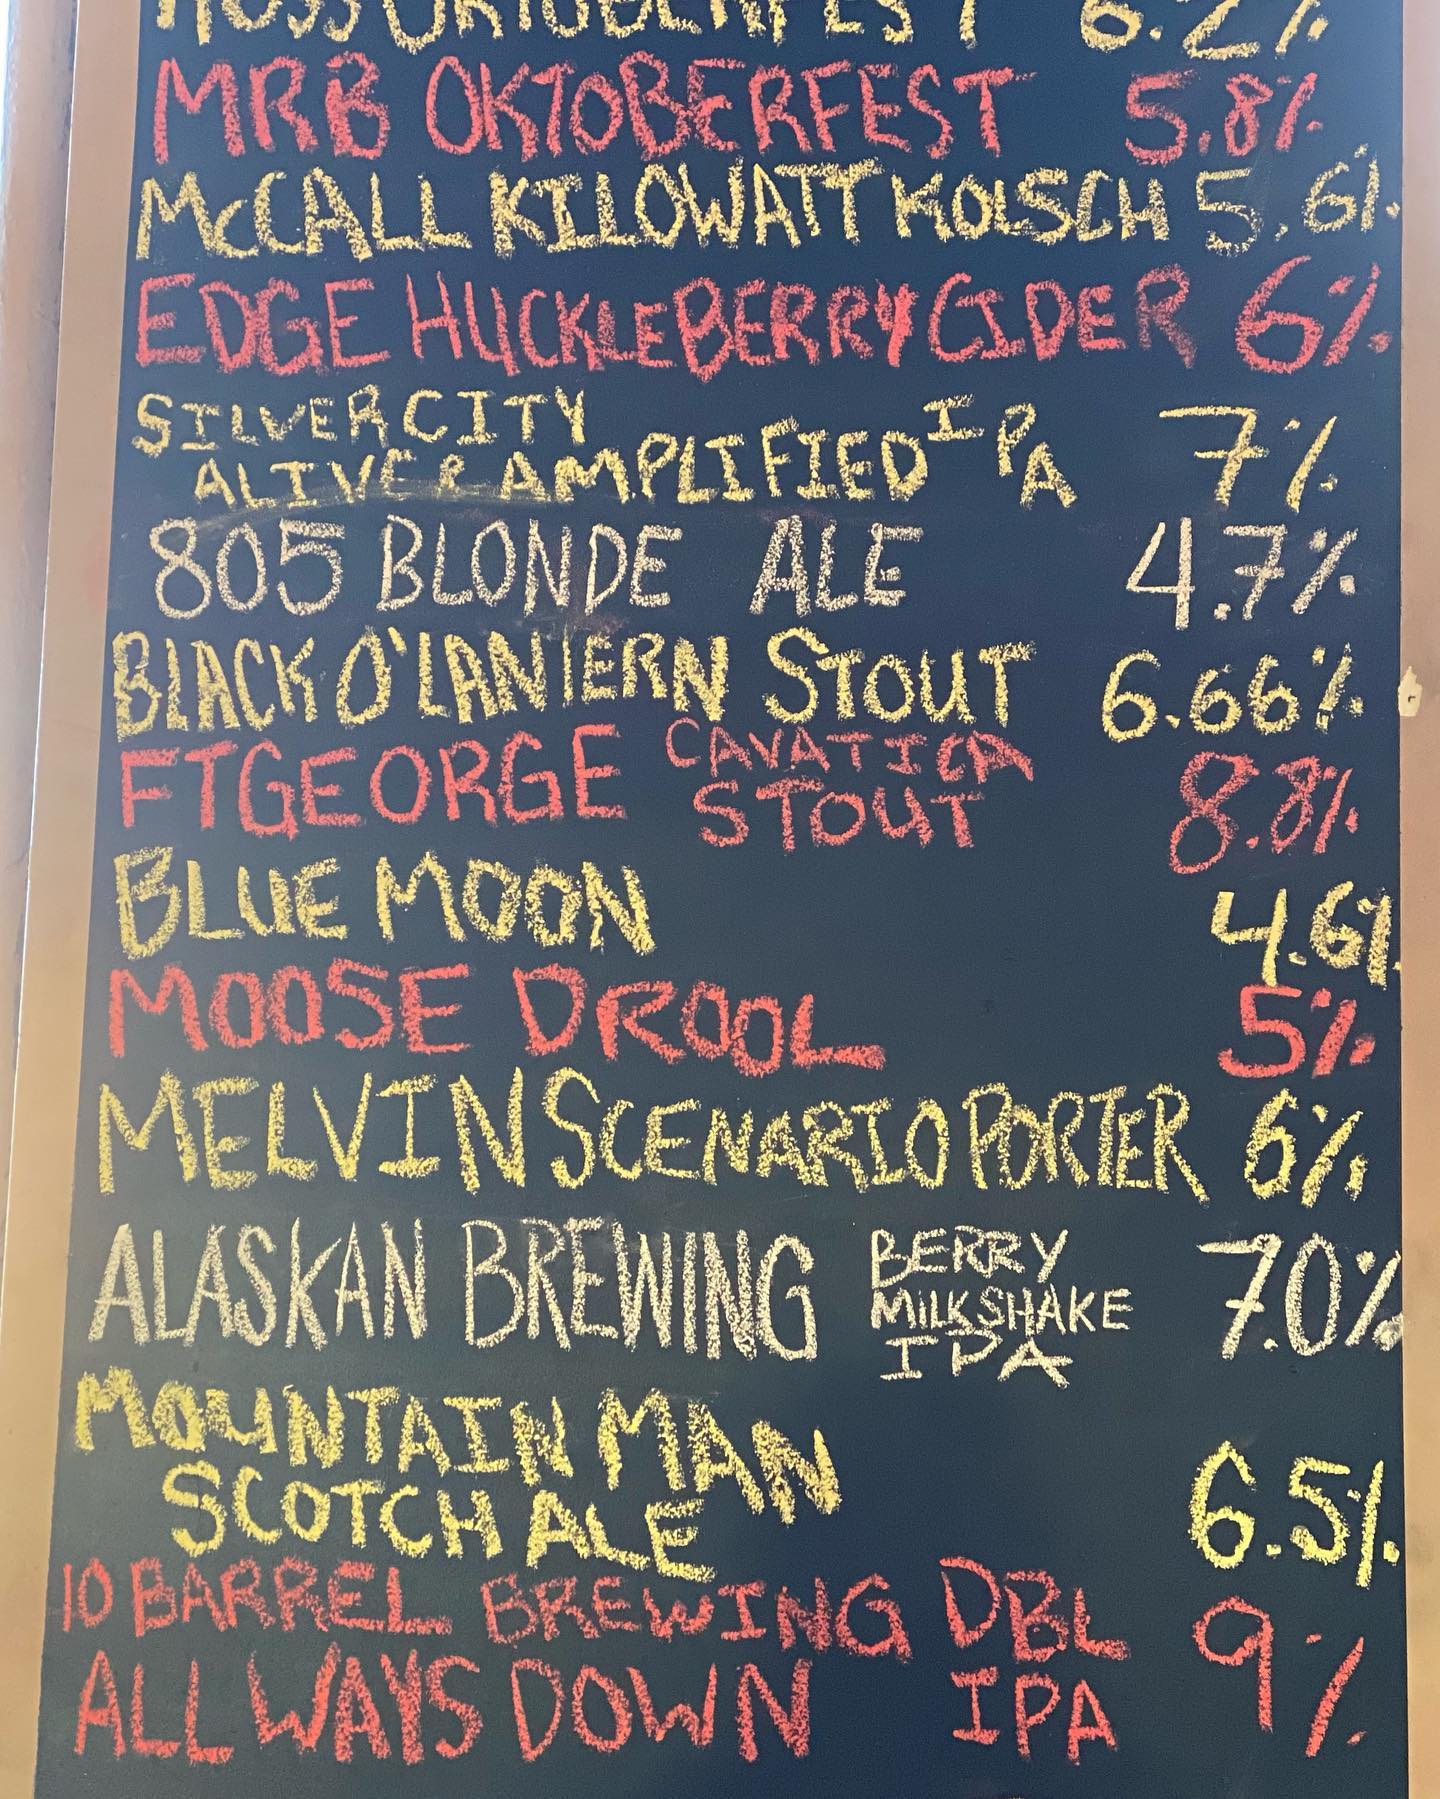 HOSS OKTOBERFEST 6.2%
MRB OKTOBERFEST 5.8%
McCALL KILOWATT KOLSCH 5.6%
EDGE HUCKLEBERRY CIDER 6%
SILVER CITY
ALIVE & AMPLIFIED IPA 7%
805 BLONDE ALE 4.7%
BLACK O'LANTERN STOUT 6.66%
FTGEORGE CAVATICA
STOUT 8.8%
BLUE MOON 4.6%
MOOSE DROOL 5%
MELVIN SCENARIO PORTER 6%
ALASKAN BREWING BERRY
MILKSHAKE
IPA 7.0%
MOUNTAIN MAN
SCOTCH ALE 6.5%
10 BARREL BREWING DBL
ALL WAYS DOWN IPA 9%